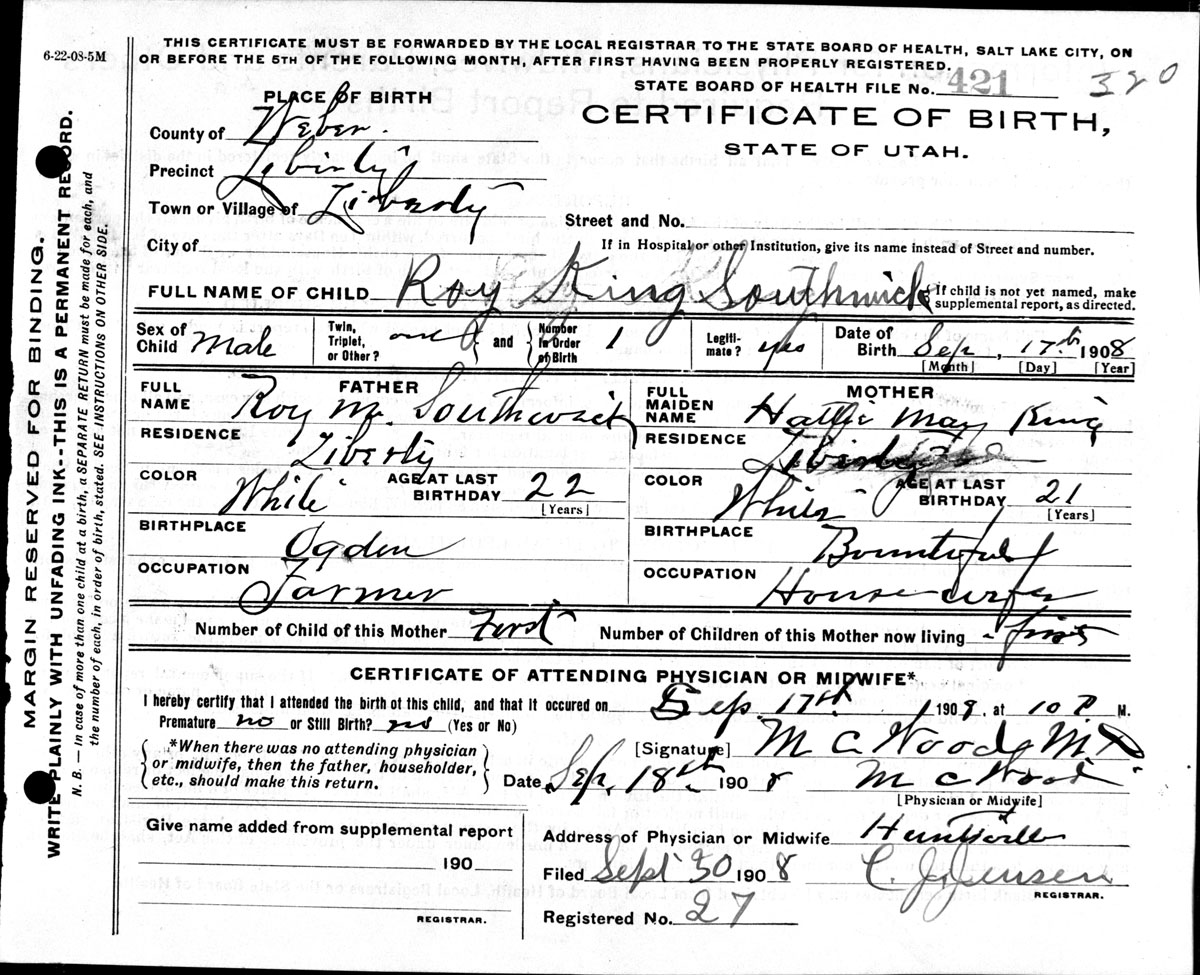 6-22-08-5M
THIS CERTIFICATE MUST BE FORWARDED BY THE LOCAL REGISTRAR TO THE STATE BOARD OF HEALTH, SALT LAKE CITY, ON
OR BEFORE THE 5TH OF THE FOLLOWING MONTH, AFTER FIRST HAVING BEEN PROPERLY REGISTERED.
STATE BOARD OF HEALTH FILE No. 421 320
PLACE OF BIRTH
CERTIFICATE OF BIRTH,
STATE OF UTAH.
County of Weber.
Precinct Liberty
Town or Village of Liberty
Street and No.
City of
If in Hospital or other Institution, give its name instead of Street and number.
FULL NAME OF CHILD Roy King Southwick
If child is not yet named, make
supplemental report, as directed.
Sex of Child Male
Twin, Triplet, or Other? one and
Number in Order of Birth 1
Legitimate? yes
Date of Birth Sep, 17th 1908
[Month] [Day] [Year]
FATHER
FULL NAME Roy M. Southwick
RESIDENCE Liberty
COLOR White
AGE AT LAST BIRTHDAY 22
[Years]
BIRTHPLACE Ogden
OCCUPATION Farmer
MOTHER
FULL MAIDEN NAME Hattie May King
RESIDENCE Liberty
COLOR White
AGE AT LAST BIRTHDAY 21
[Years]
BIRTHPLACE Bountiful
OCCUPATION House wife
Number of Child of this Mother First Number of Children of this Mother now living - first
CERTIFICATE OF ATTENDING PHYSICIAN OR MIDWIFE*
I hereby certify that I attended the birth of this child, and that it occured on Sep. 17th 1908, at 10 P. M.
Premature no or Still Birth? no (Yes or No)
*When there was no attending physician
or midwife, then the father, householder,
etc., should make this return.
[Signature] M C Wood MD
Date Sep. 18th 1908 M C Wood
[Physician or Midwife]
Give name added from supplemental report
190
REGISTRAR.
Address of Physician or Midwife Huntsville
Filed Sept 30 1908 C. J. Jensen
REGISTRAR.
Registered No. 27
MARGIN RESERVED FOR BINDING.
WRITE PLAINLY WITH UNFADING INK--THIS IS A PERMANENT RECORD.
N. B. — In case of more than one child at a birth, a SEPARATE RETURN must be made for each, and
the number of each, in order of birth, stated. SEE INSTRUCTIONS ON OTHER SIDE.